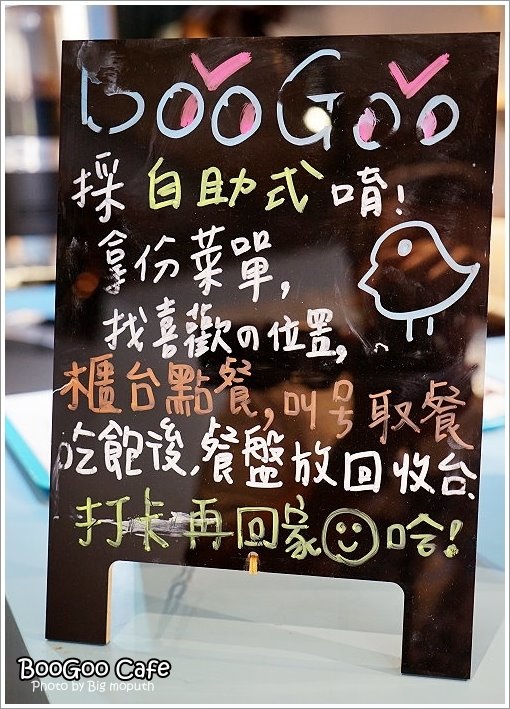 BooGoo
採自助式唷!
拿份菜單,
找喜歡の位置,
櫃台點餐,叫号取餐
吃飽後,餐盤放回收台.
打卡再回家哈!
BooGoo Cafe
Photo by Big moputh